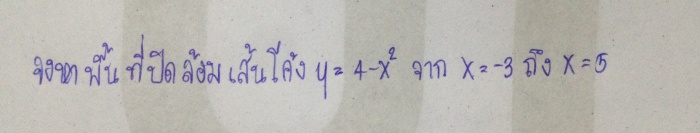 จงหาพื้นที่ปิดล้อมเส้นโค้ง y = 4-x² จาก x = -3 ถึง x = 5